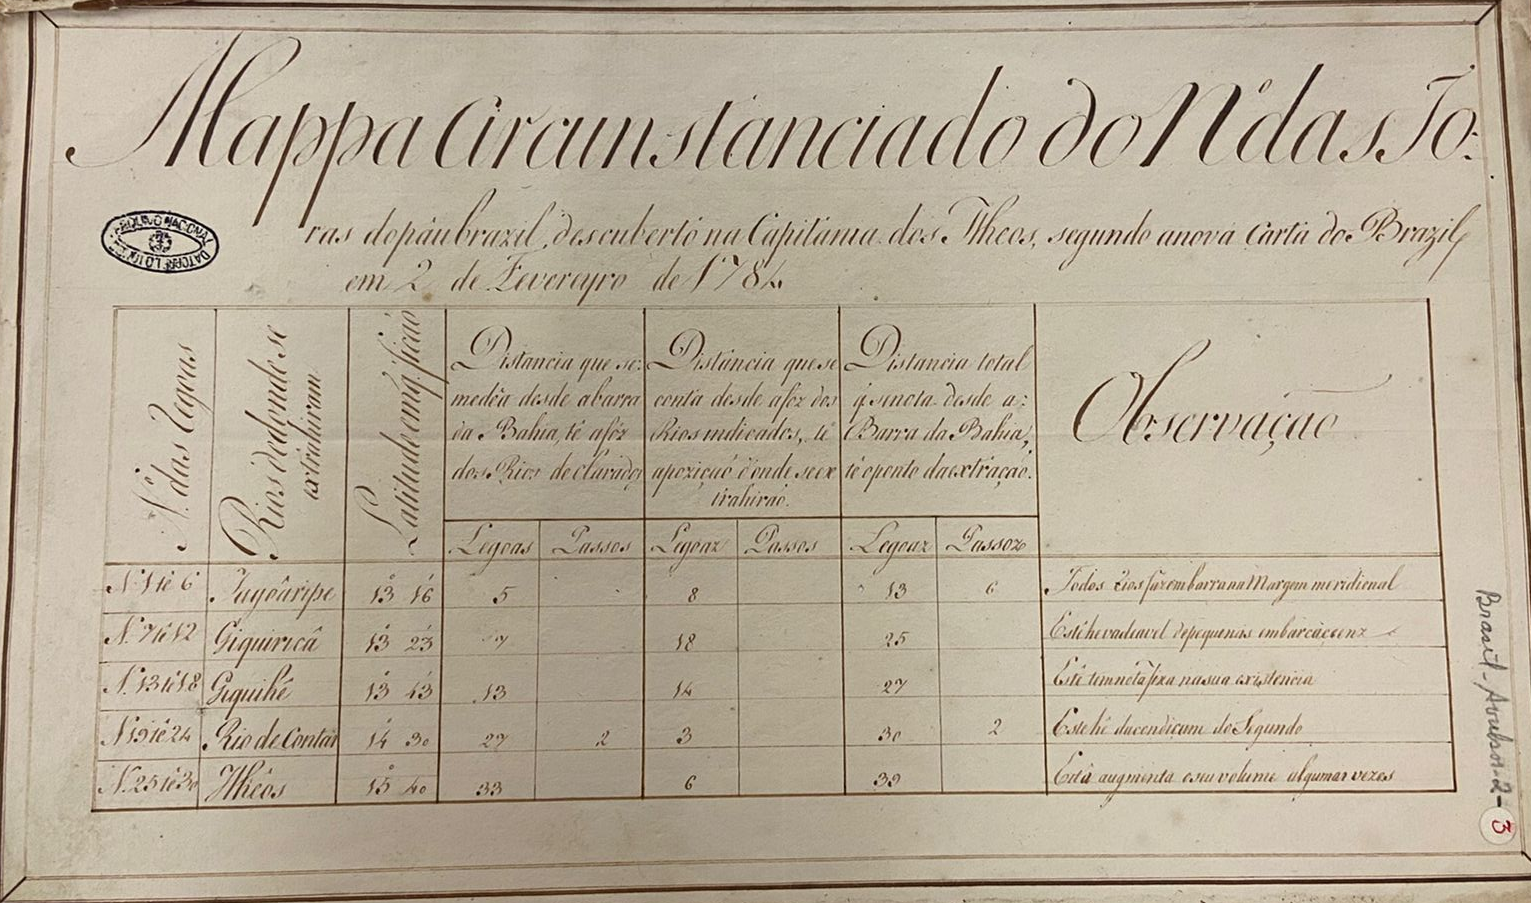 Mappa Circunstanciado do N.º das To-
ras do páu brazil, descuberto na Capitama dos Ilheos, segundo a nova Carta do Brazil
em 2 de Fevereyro de 1784
ARQUIVO NACIONAL
N. das Legoas
Rios dadonde se extrahiram
Latitude em q̃ ficaõ
Distancia que se medéa desde a barra da Bahia, té a fóz dos Rios declarados
Distáncia que se conta desde a fóz dos Rios indicados, té a poziçaõ d'onde se extrahiraõ.
Distancia total q̃ se nota desde a Barra da Bahia, té o ponto da extraçaõ.
Observaçaõ
Legoas Passos Legoaz Passos Legoaz Passoz
N. 1 té 6 Jagoâripe 13 16 5 8 13 6 Todos Rios fazem barra na Margem meridional
N. 7 té 12 Giquiriçâ 13 23 7 18 25 Esté he vadeavel de pequenas embarcaçoenz
N. 13 té 18 Giquihê 13 43 13 14 27 Esté tem nota fixa na sua existencia
N. 19 té 24 Rio de Contas 14 30 27 2 3 30 2 Este hê da do Segundo
N. 25 té 30 Ilhêos 15 40 33 6 39 Esta augmenta o seu volume algumas vezes
Brasil - Avulsos - 2 - 3